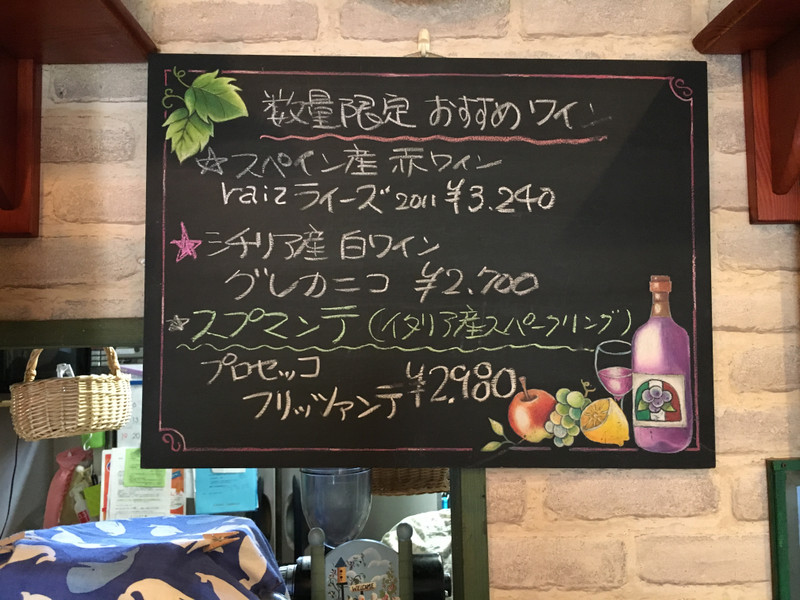 数量限定 おすすめワイン
☆スペイン産 赤ワイン
raiz ライーズ 2011 ¥3.240
★シチリア産 白ワイン
グレカニコ ¥2.700
☆スプマンテ(イタリア産スパークリング)
プロセッコ
フリッツァンテ ¥2.980
WELCOME